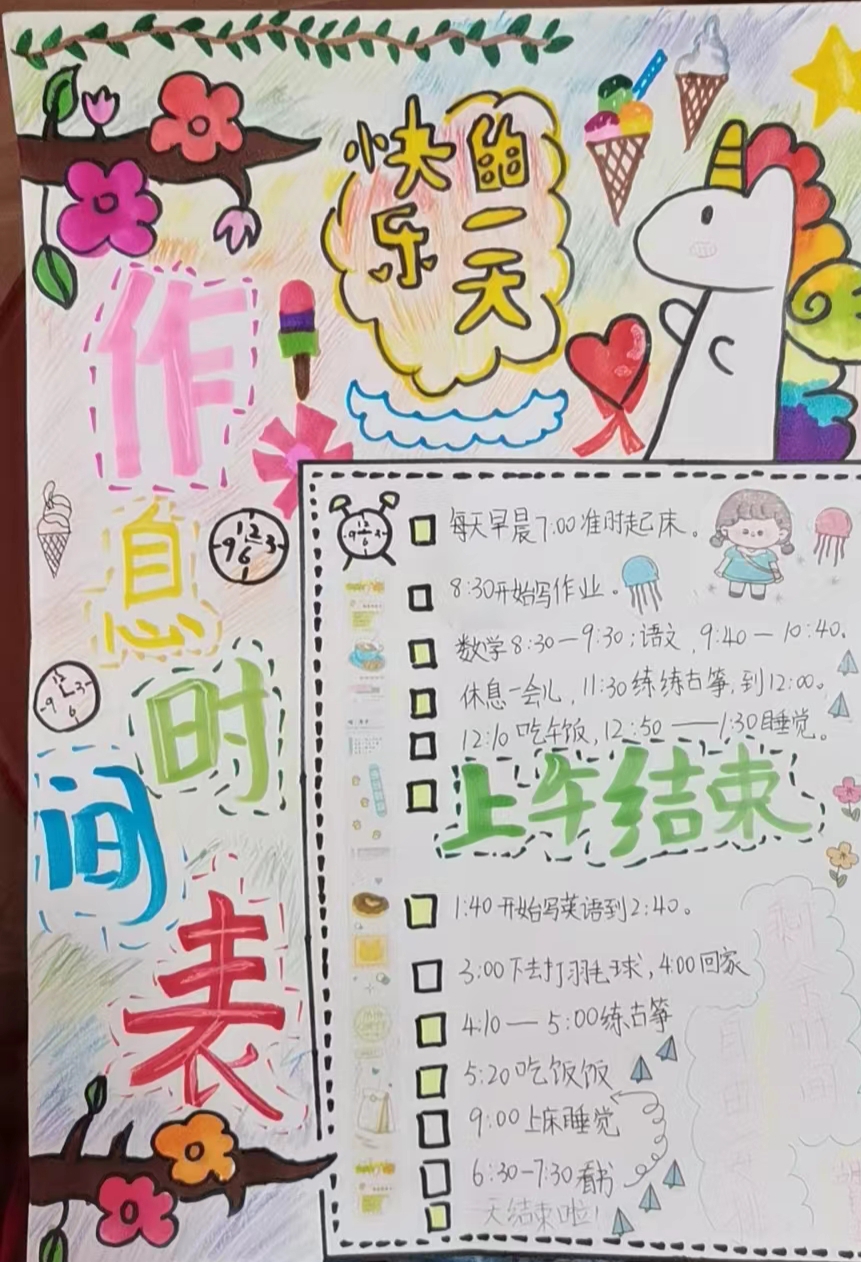 快乐
的一天
作息时间表
每天早晨7:00准时起床。
8:30开始写作业。
数学8:30—9:30；语文，9:40—10:40。
休息一会儿，11:30练练古筝，到12:00。
12:10吃午饭，12:50——1:30睡觉。
上午结束
1:40开始写英语到2:40。
3:00下去打羽毛球，4:00回家
4:10—5:00练古筝
5:20吃饭饭
9:00上床睡觉
6:30-7:30看书
天结束啦！
剩余时间
自由